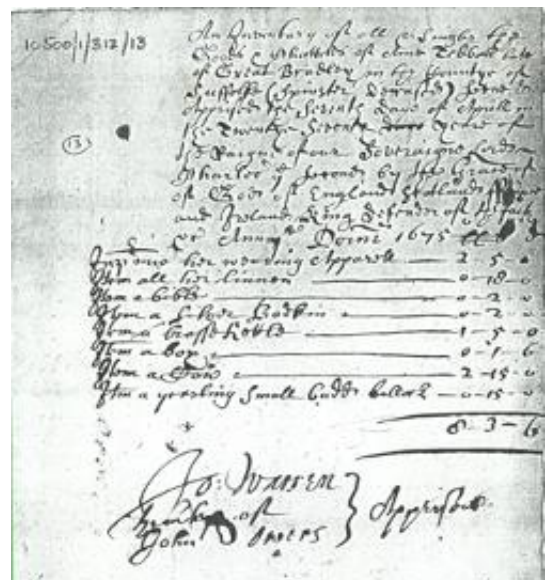 10500/1/312/13
An Inventary of all & singuler the
Goods & Chattells of Anne Tebbat late
of Great Bradley in the Countye of
Suffolke (spinster deceased)
Apprised the Seventh daye of Aprill in
the Twentye Seventh yeare of
(13)
the Raigne of our Soveraigne Lorde
Charles the second by the Grace
of God of England Scotland France
and Ireland King Defender of the faith
Anno Domi 1675
her wearing Apparell — 2 - 5 - 0
Itm all her linnen — 0 - 18 - 0
Itm a bible — 0 - 2 - 0
Itm a silver Bodkin — 0 - 2 - 0
Itm a brasse kettle — 1 - 5 - 0
Itm a box — 0 - 1 - 6
Itm a Cow — 2 - 15 - 0
Itm a yearling small budd bullock — 0 - 15 - 0
8 - 3 - 6
Jo: Warren
of
John
Apprisors